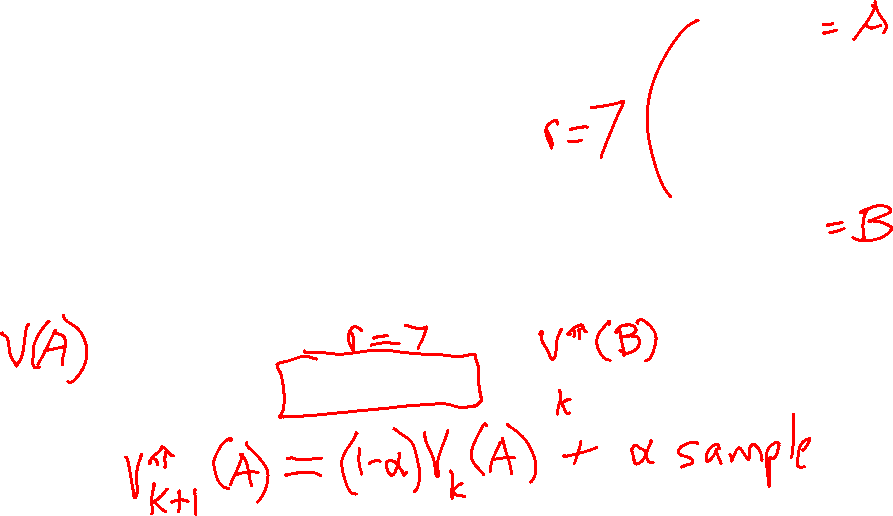 = A
r = 7
= B
V(A) r = 7 V^π(B)
k
V^π_{K+1}(A) = (1-α)V_k(A) + α sample